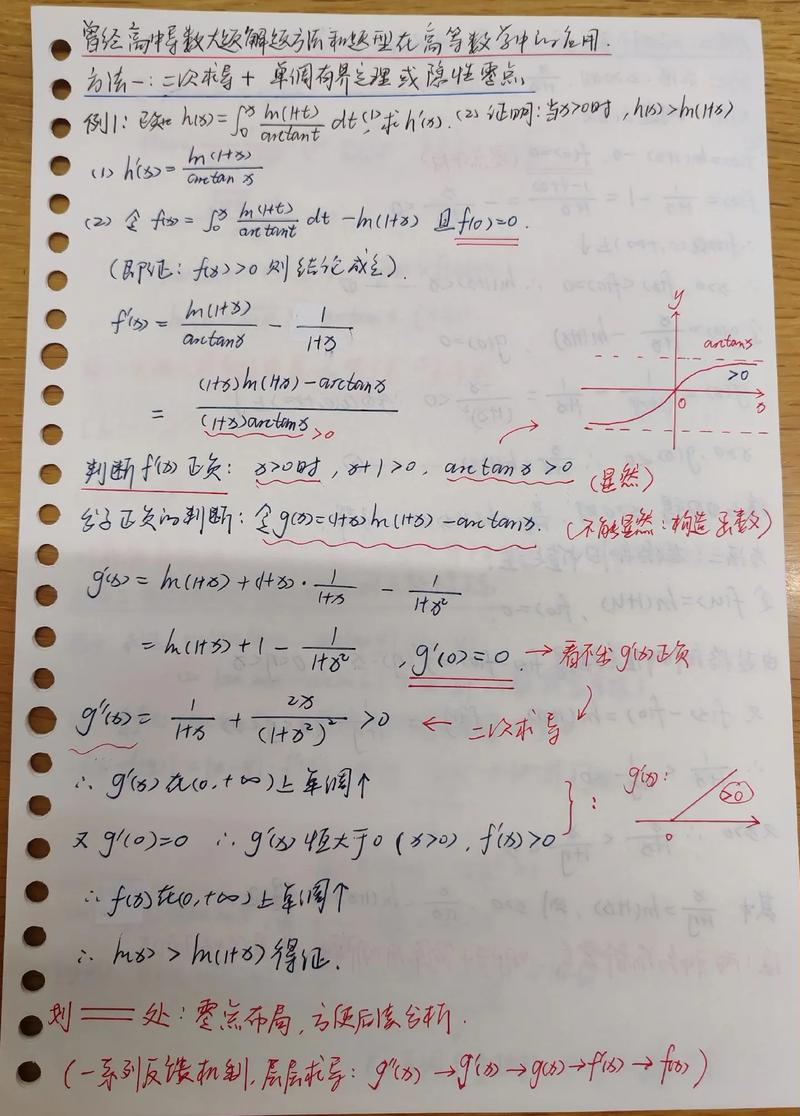 曾经高中导数大题解题方法和题型在高等数学中的应用.
方法一:二次求导+单调有界定理或隐性零点
例1:已知 h(x)=∫₀ˣ ln(1+t)/arctant dt,(1)求h'(x).(2)证明:当x>0时,h(x)>ln(1+x)
(1) h'(x)= ln(1+x)/arctan x
(2) 令 f(x)=∫₀ˣ ln(1+t)/arctant dt -ln(1+x) 且f(0)=0.
(即证:f(x)>0 则结论成立).
f'(x)= ln(1+x)/arctanx - 1/(1+x)
= ((1+x)ln(1+x)-arctanx)/((1+x)arctanx) >0
y
arctanx
>0
0
x
判断f'(x)正负: x>0时, x+1>0, arctanx>0 (显然)
分子正负的判断:令g(x)=(1+x)ln(1+x)-arctanx. (不能显然:构造函数)
g'(x)= ln(1+x)+(1+x)·1/(1+x) - 1/(1+x²)
= ln(1+x)+1- 1/(1+x²) , g'(0)=0. → 看不出g'(x)正负
g''(x)= 1/(1+x) + 2x/(1+x²)² >0 ← 二次求导
∴ g'(x)在(0,+∞)上单调↑
又 g'(0)=0 ∴ g'(x)恒大于0 (x>0), f'(x)>0
} : g'(x): >0
0
∴ f(x)在(0,+∞)上单调↑
∴ h(x) > ln(1+x) 得证.
划 ══ 处:零点布局,方便后续分析.
(一系列反馈机制,层层求导: g''(x)→g'(x)→g(x)→f'(x)→f(x))